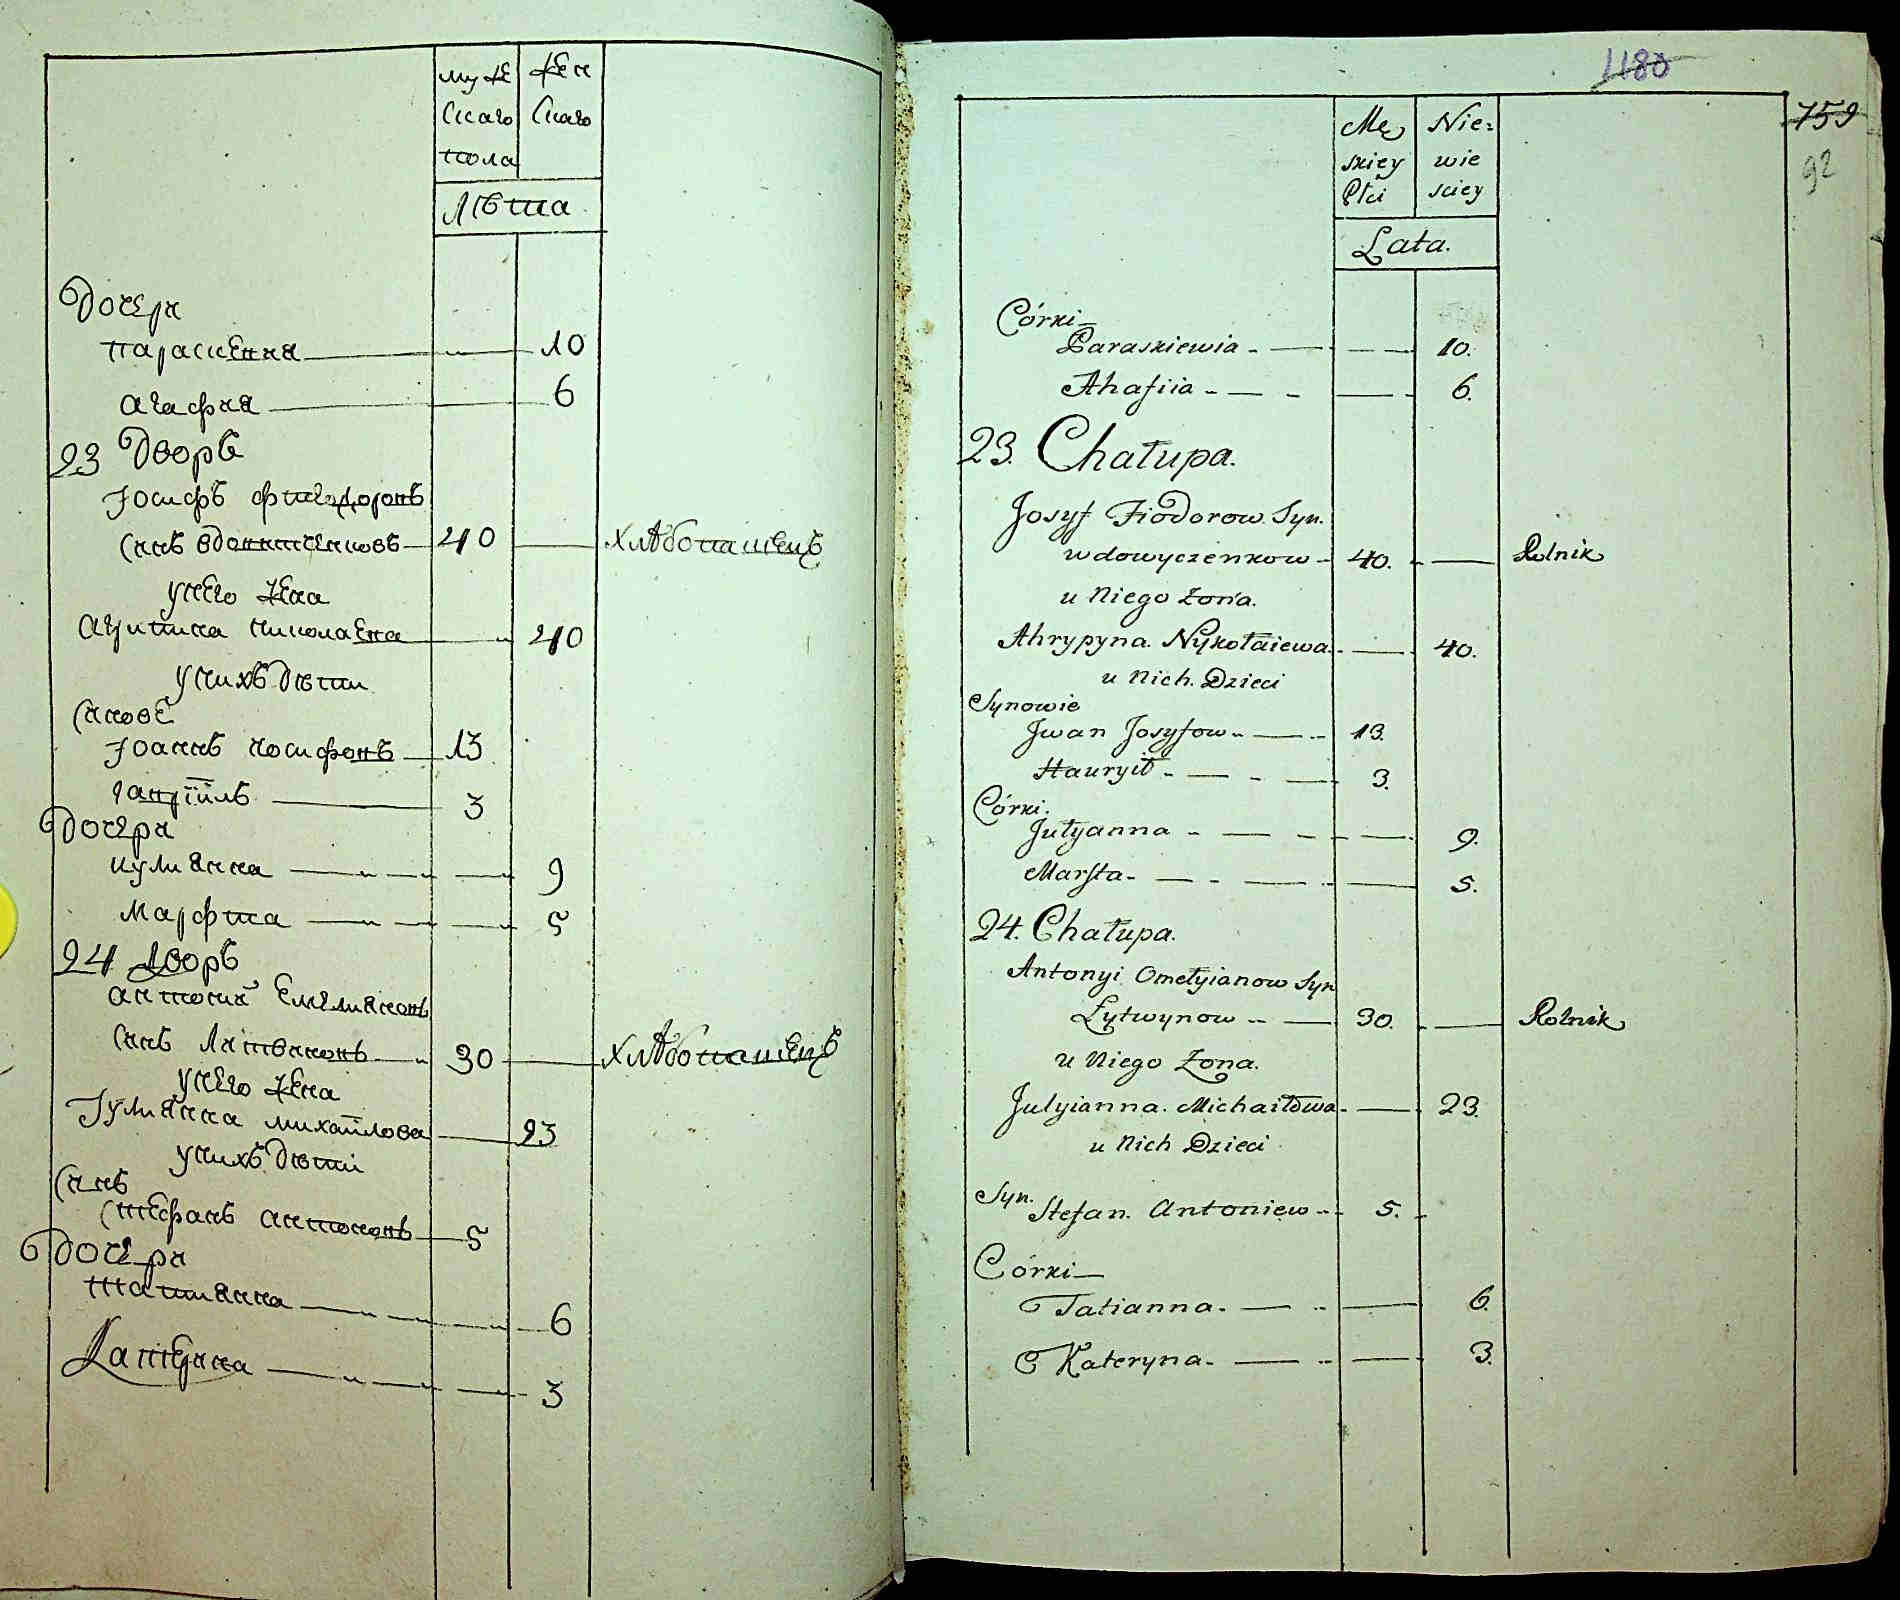 муже жен
скаго скаго
пола
лѣта
Дочери
параскевия 10
агафия 6
23 Дворъ
Іосифъ фтеодоровъ
синъ вдовитченковъ 40 хлѣбопашецъ
унего жена
агрипина николаева 40
унихъ дѣти
синове
Іоаннъ иосифовъ 13
гавріилъ 3
Дочери
иулианна 9
марфта 5
24 Дворъ
антоний Емелияновъ
синъ Литвиновъ 30 хлѣбопашецъ
унего жена
Іулианна михайлова 23
унихъ дѣти
синъ
стефанъ антоновъ 5
Дочери
татианна 6
Катерина 3
1180
759
92
Mę Nie=
skiey wie
Płci sciey
Lata.
Córki
Paraskiewia 10.
Ahafiia 6.
23. Chałupa.
Josyf Fiodorow Syn.
wdowyczenkow 40. Rolnik
u Niego Żona.
Ahrypyna. Nykołaiewa 40.
u Nich. Dzieci
Synowie
Jwan Josyfow 13.
Hauryił 3.
Córki.
Jułyanna 9.
Marfta 5.
24. Chałupa.
Antonyi Omełyianow Syn
Łytwynow 30. Rolnik
u Niego Żona.
Julyianna. Michaiłowa 23.
u Nich Dzieci
Syn.
Stefan. Antoniew 5.
Córki
Tatianna. 6.
Kateryna. 3.